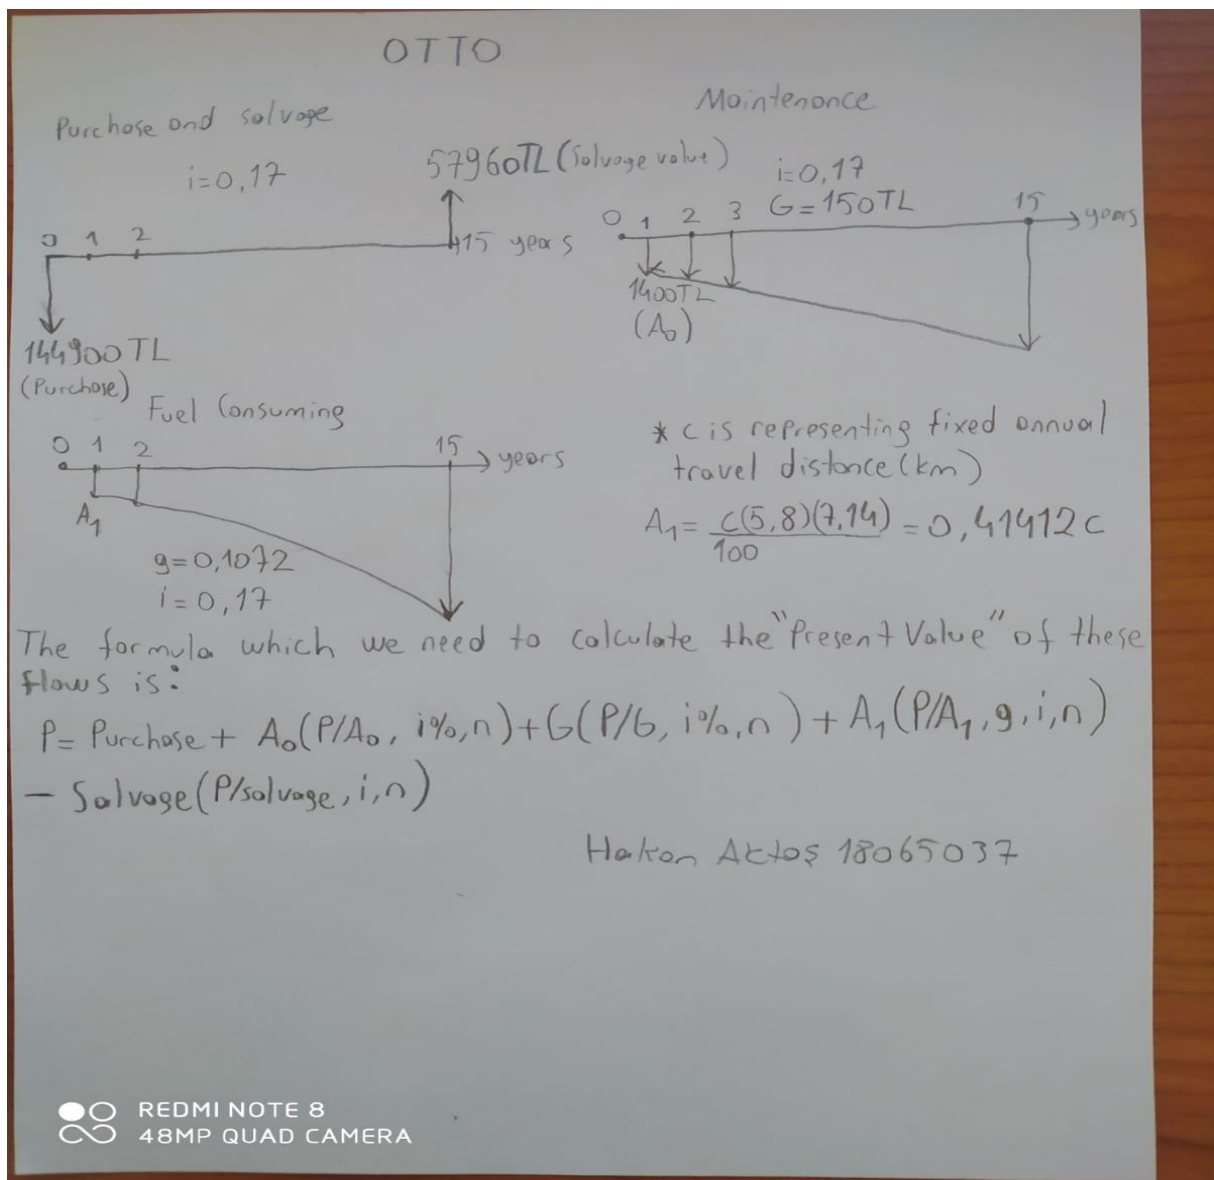 OTTO
Purchase and salvage
i=0,17
57960TL (Salvage value)
0 1 2
15 years
144900 TL
(Purchase)
Maintenance
i=0,17
G=150TL
0 1 2 3 15 years
1400TL
(A₀)
Fuel Consuming
0 1 2 15 years
A₁
g=0,1072
i=0,17
* c is representing fixed annual
travel distance (km)
A₁= c(5,8)(7,14)/100 = 0,41412c
The formula which we need to calculate the "Present Value" of these
flows is:
P= Purchase + A₀(P/A₀, i%,n)+G(P/G, i%,n) + A₁(P/A₁,g,i,n)
- Salvage(P/salvage,i,n)
Hakan Aktaş 18065037
REDMI NOTE 8
48MP QUAD CAMERA